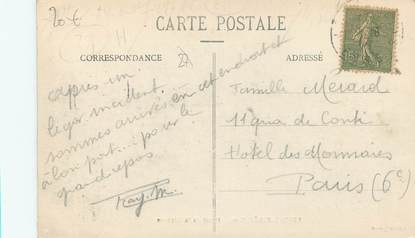 20 €
CARTE POSTALE
CORRESPONDANCE
27
ADRESSÉ
après un
léger incident
sommes arrivés en cet endroit et
à bon port... pour le
grand repos
Ray. M.
Famille Merard
11 quai de Conti
Hotel des Monnaies
Paris (6e)
15